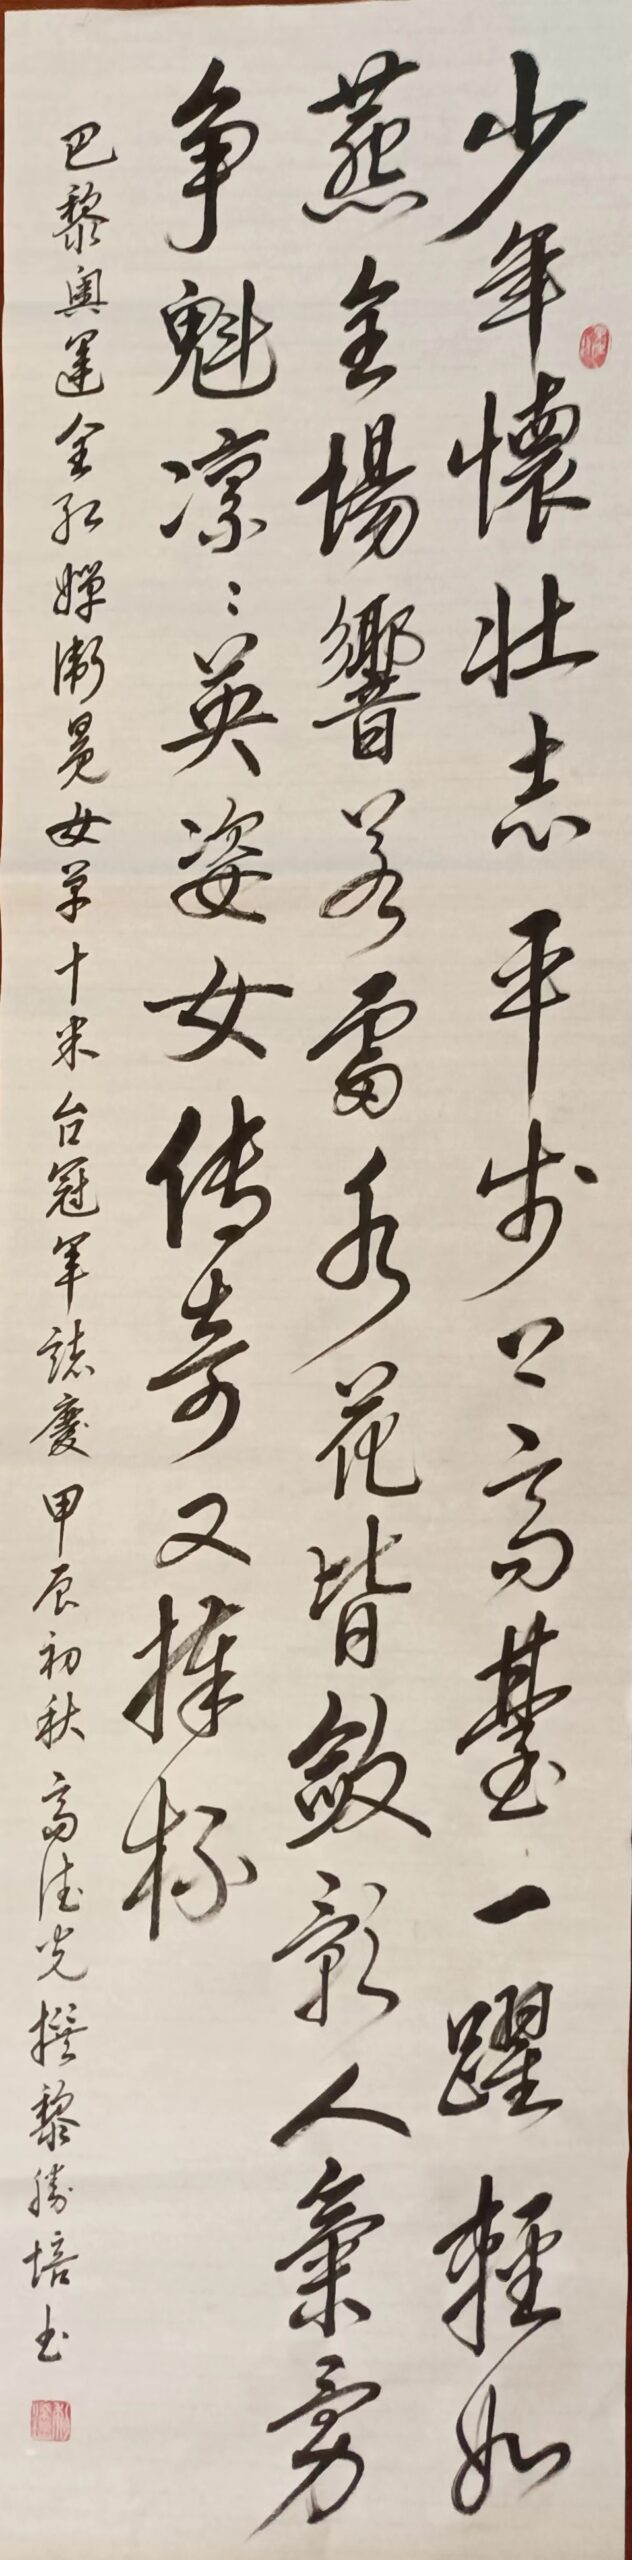 少年懷壯志平步上高臺一躍輕如
燕全場響若雷水花皆斂影人氣勇
争魁凛〻英姿女传奇又捧杯
巴黎奥運全红嬋衛冕女单十米台冠军誌慶甲辰初秋高法光撰黎勝培书